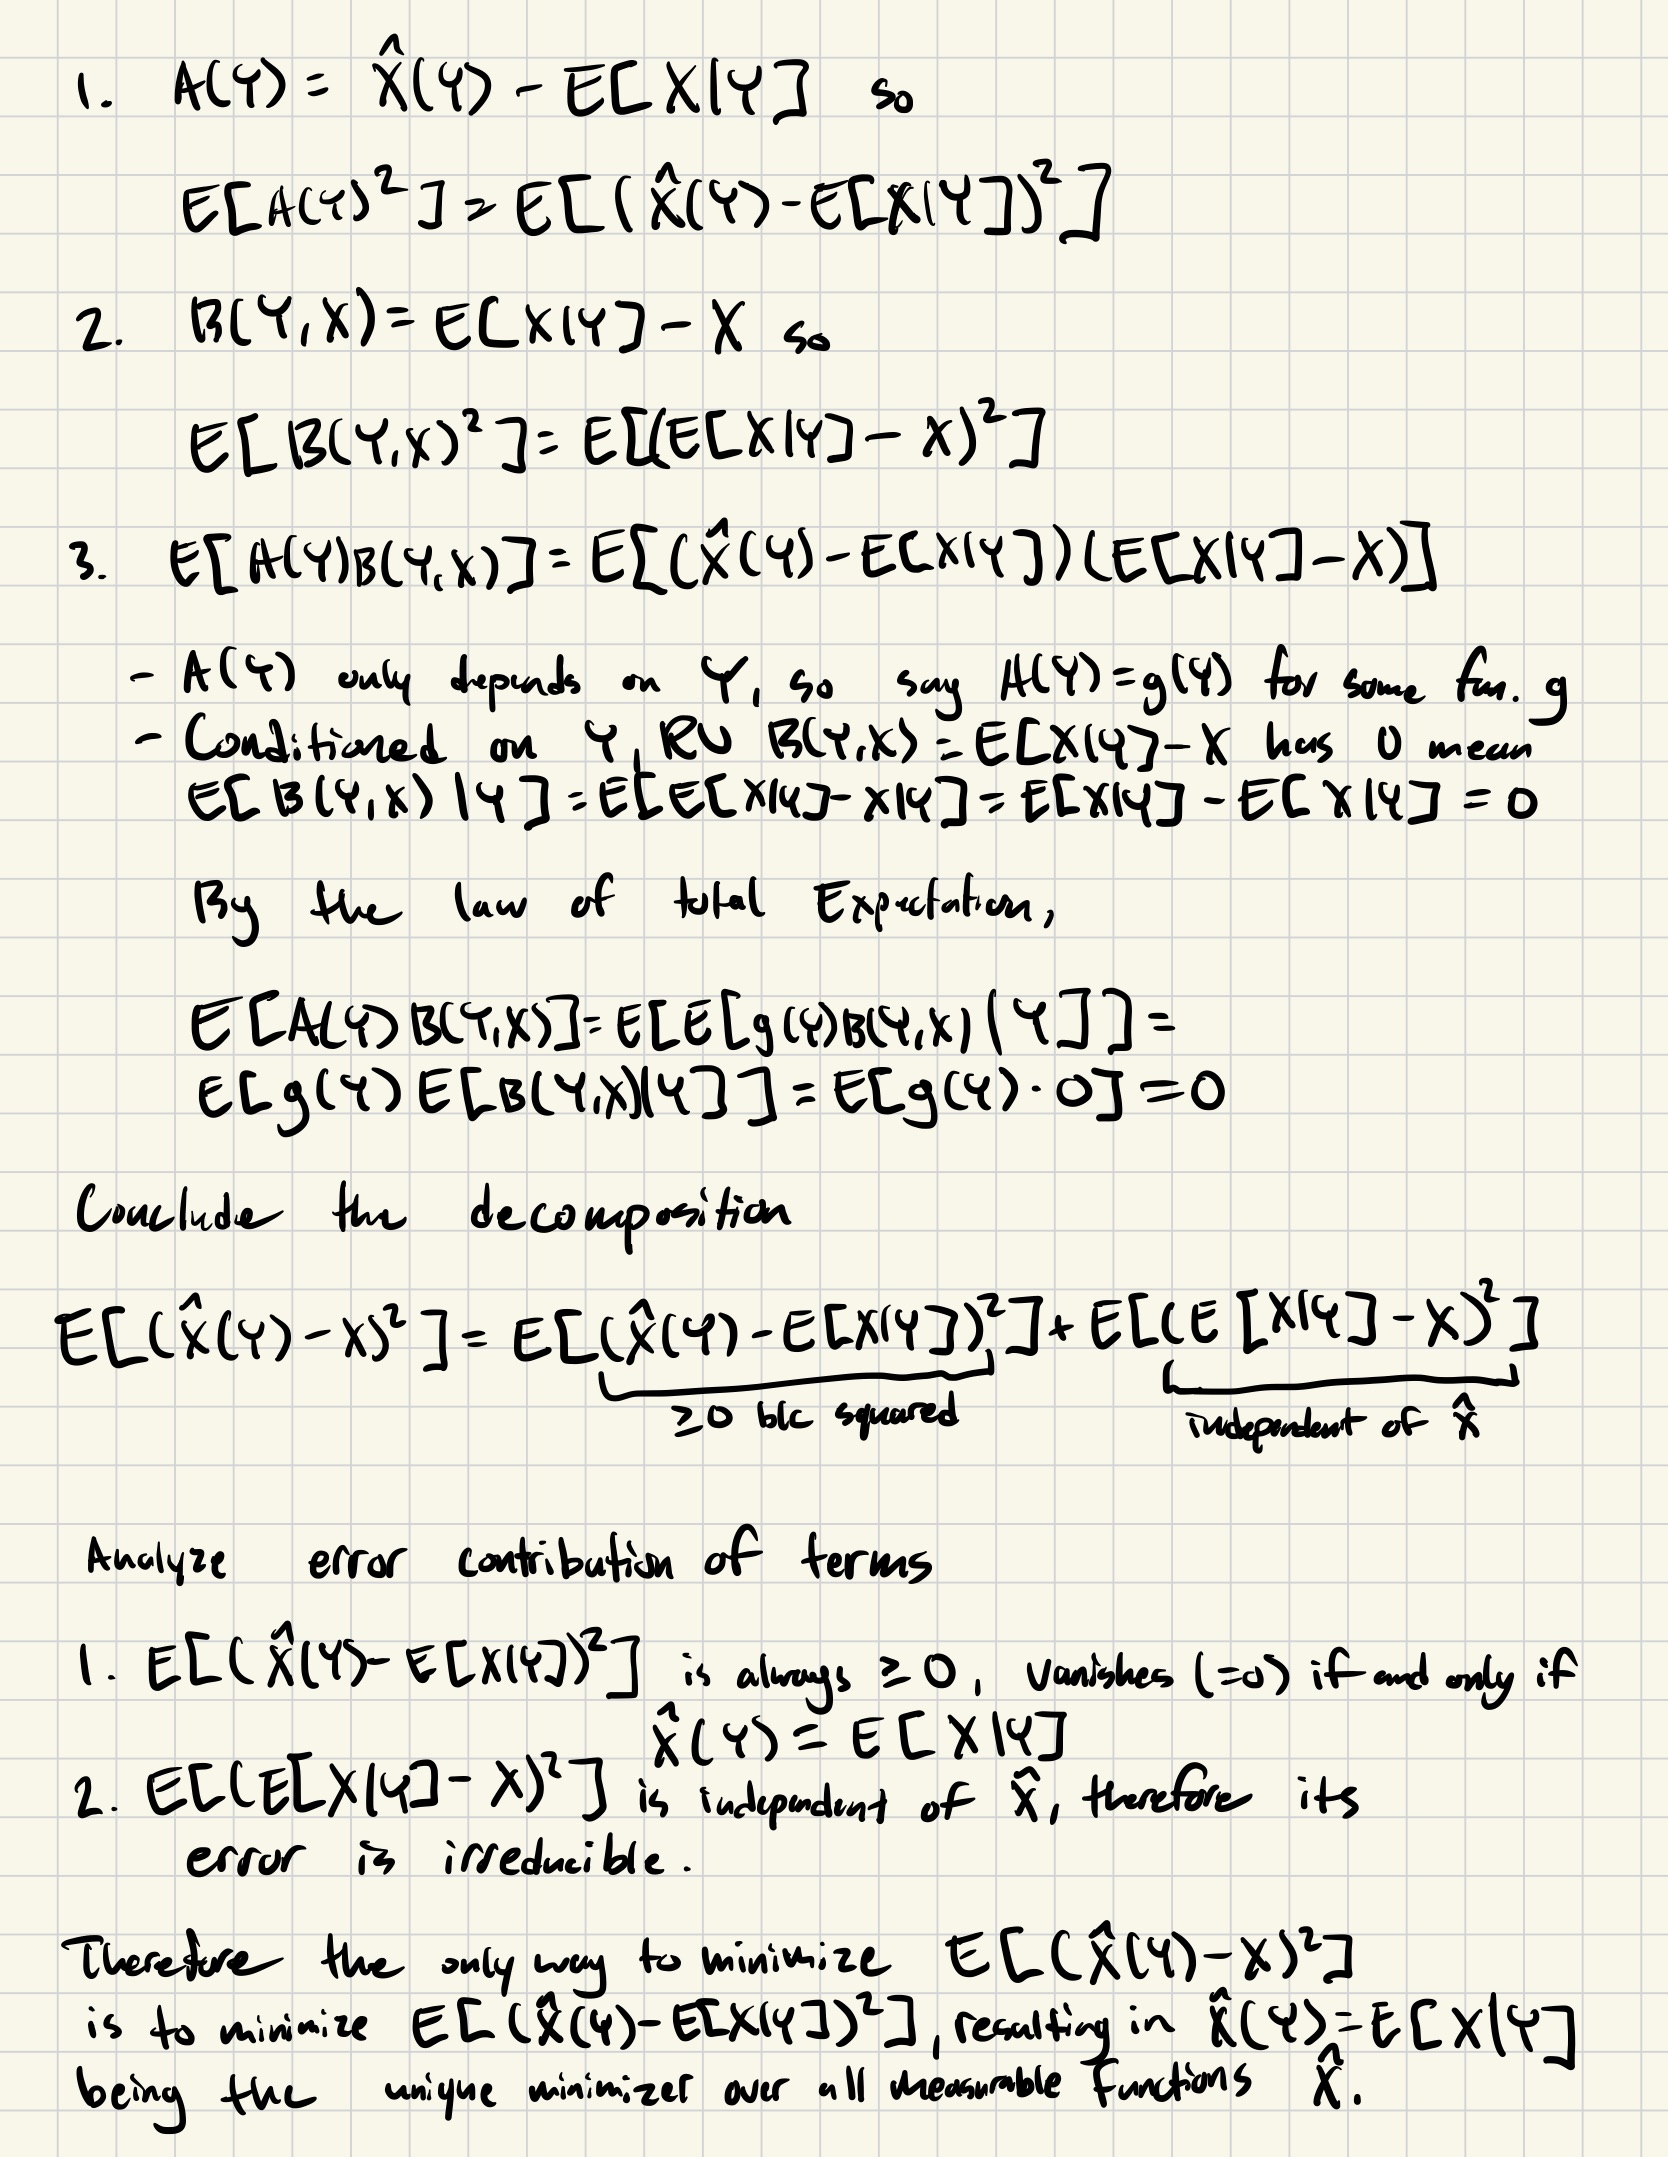 1. A(Y) = X̂(Y) - E[X|Y] so
E[A(Y)²] = E[(X̂(Y) - E[X|Y])²]
2. B(Y,X) = E[X|Y] - X so
E[B(Y,X)²] = E[(E[X|Y] - X)²]
3. E[A(Y)B(Y,X)] = E[(X̂(Y) - E[X|Y])(E[X|Y] - X)]
- A(Y) only depends on Y, so say A(Y) = g(Y) for some fun. g
- Conditioned on Y, RV B(Y,X) = E[X|Y] - X has 0 mean
E[B(Y,X)|Y] = E[E[X|Y] - X|Y] = E[X|Y] - E[X|Y] = 0
By the law of total Expectation,
E[A(Y)B(Y,X)] = E[E[g(Y)B(Y,X)|Y]] =
E[g(Y)E[B(Y,X)|Y]] = E[g(Y)·0] = 0
Conclude the decomposition
E[(X̂(Y) - X)²] = E[(X̂(Y) - E[X|Y])²] + E[(E[X|Y] - X)²]
≥0 b/c squared independent of X̂
Analyze error contribution of terms
1. E[(X̂(Y) - E[X|Y])²] is always ≥ 0, vanishes (=0) if and only if
X̂(Y) = E[X|Y]
2. E[(E[X|Y] - X)²] is independent of X̂, therefore its
error is irreducible.
Therefore the only way to minimize E[(X̂(Y) - X)²]
is to minimize E[(X̂(Y) - E[X|Y])²], resulting in X̂(Y) = E[X|Y]
being the unique minimizer over all measurable functions X̂.